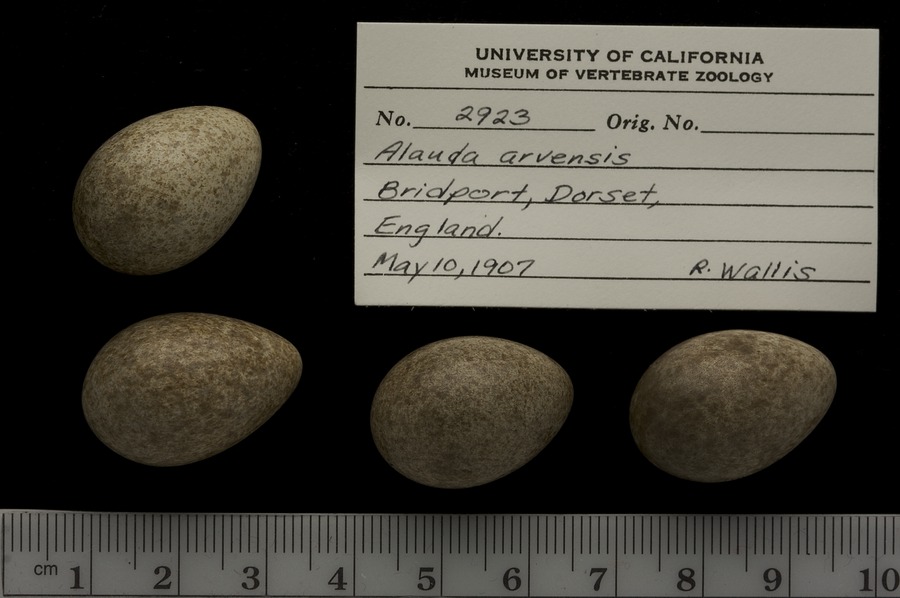 UNIVERSITY OF CALIFORNIA
MUSEUM OF VERTEBRATE ZOOLOGY
No. 2923 Orig. No.
Alauda arvensis
Bridport, Dorset,
England.
May 10, 1907 R. Wallis
cm 1 2 3 4 5 6 7 8 9 10